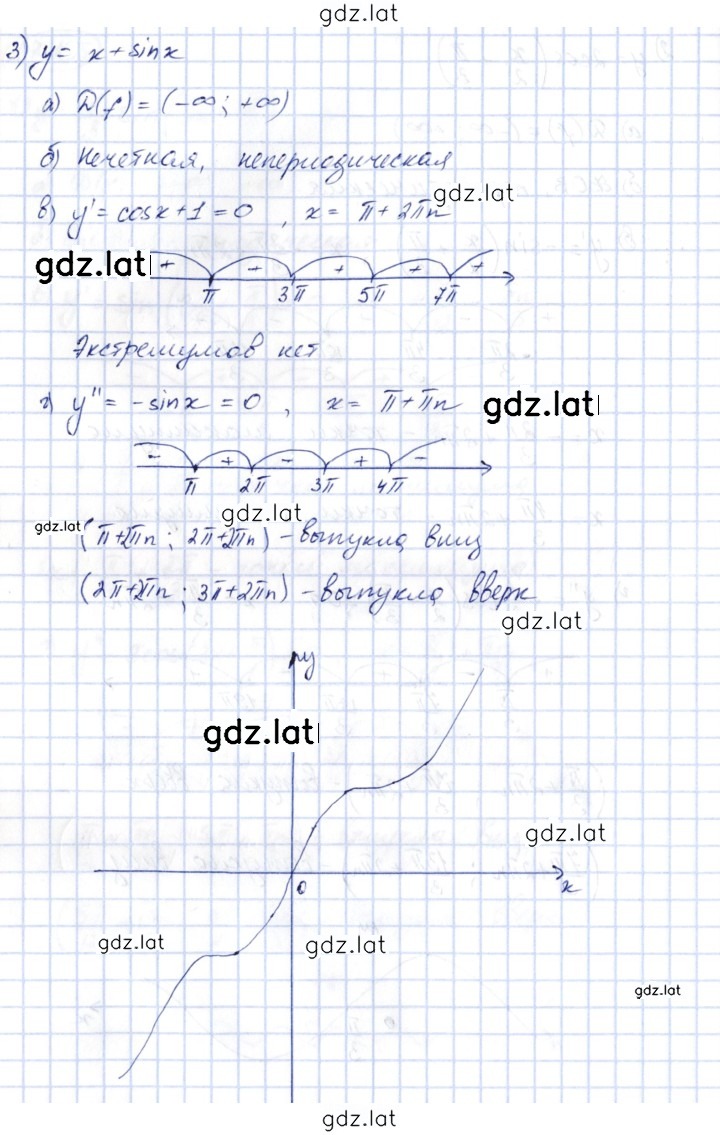 gdz.lat
3) y = x + sinx
а) D(f) = (-∞; +∞)
б) Нечетная, непериодическая
gdz.lat
в) y' = cosx + 1 = 0 , x = π + 2πn
gdz.lat
+ + + + +
π 3π 5π 7π
Экстремумов нет
г) y'' = -sinx = 0 , x = π + πn
gdz.lat
- + - + -
π 2π 3π 4π
gdz.lat
gdz.lat
(π+2πn ; 2π+2πn) – выпукла вниз
(2π+2πn ; 3π+2πn) – выпукла вверх
gdz.lat
y
gdz.lat
gdz.lat
0
x
gdz.lat
gdz.lat
gdz.lat
gdz.lat